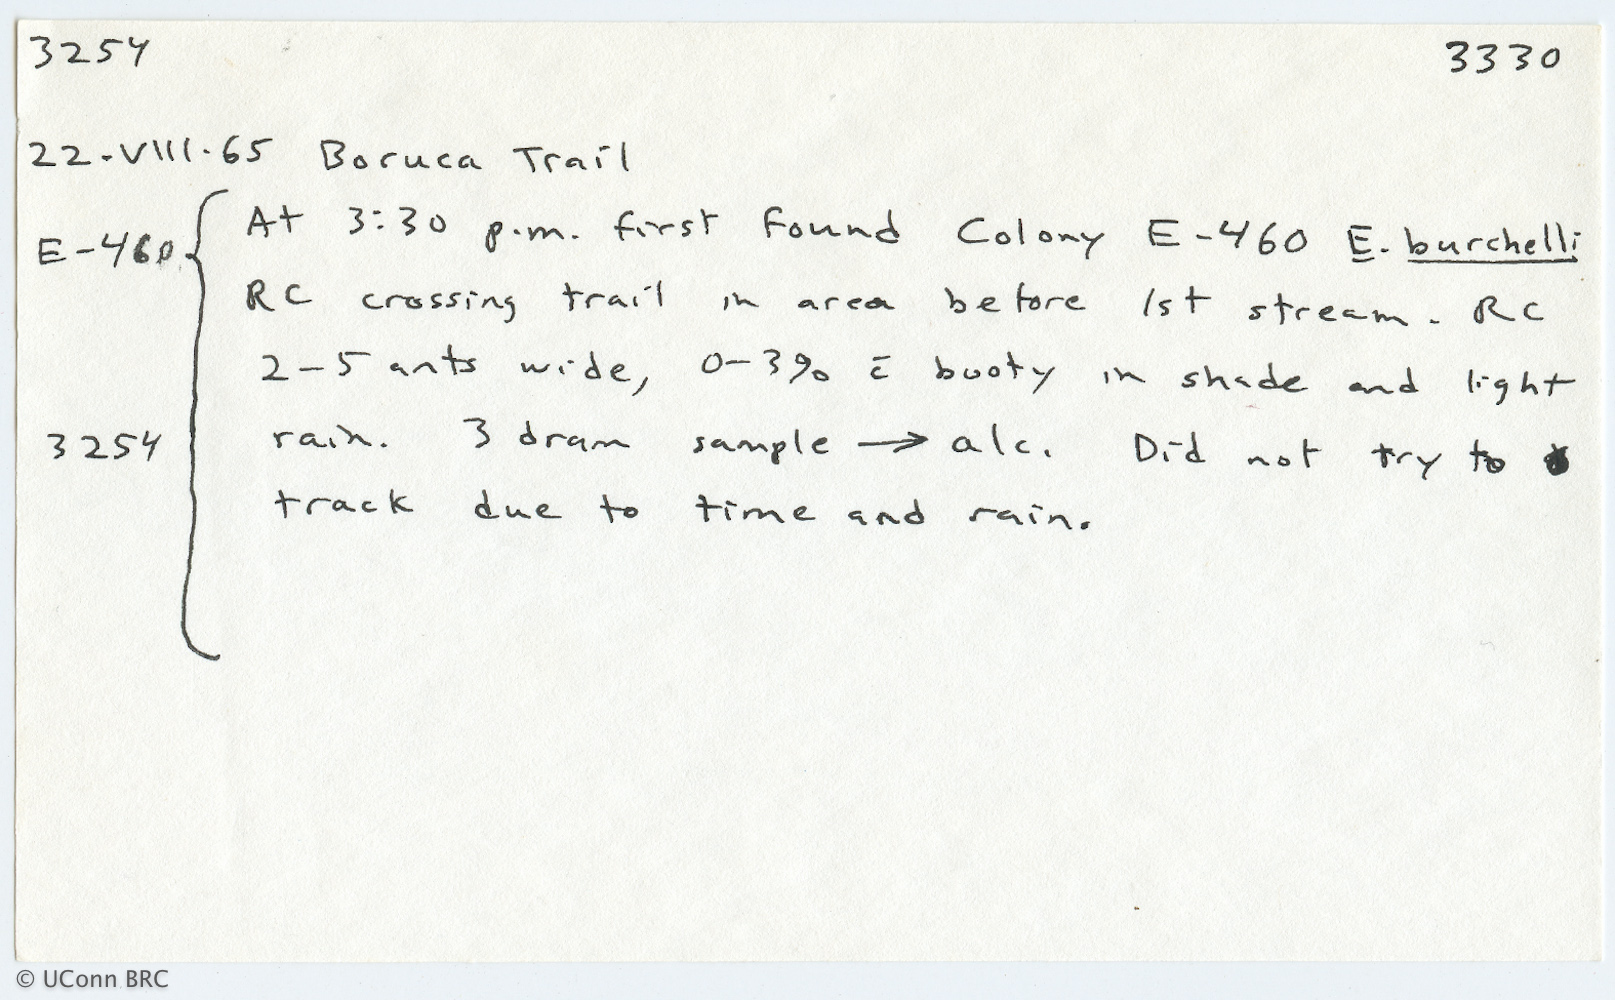 3254 3330
22.VIII.65 Boruca Trail
E-460 At 3:30 p.m. first found Colony E-460 E. burchelli
RC crossing trail in area before 1st stream. RC
2-5 ants wide, 0-3% c̄ booty in shade and light
3254 rain. 3 dram sample → alc. Did not try to
track due to time and rain.
© UConn BRC